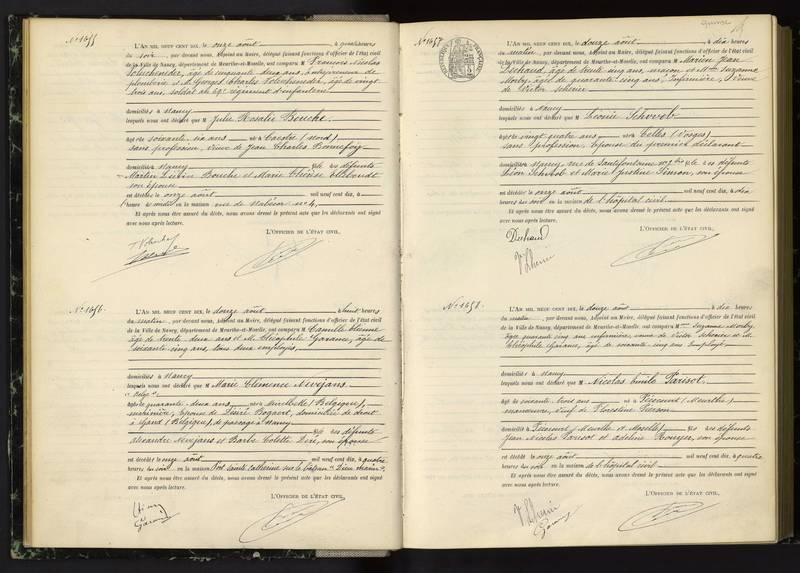 N° 1655
L'AN MIL NEUF CENT DIX, le onze août, à heures
du soir, par devant nous, Adjoint au Maire, délégué faisant fonctions d'officier de l'état civil
de la Ville de Nancy, département de Meurthe-et-Moselle, ont comparu M François Nicolas
âgé de cinquante deux ans, entrepreneur de
plomberie et M Georges Charles âgé de vingt
trois ans, soldat au 69e régiment d'infanterie
domiciliés à Nancy
lesquels nous ont déclaré que M Julie Rosalie Bouche
âgé de soixante six ans né à (Nord)
sans profession, veuve de Jean Charles Bonnefoy
domicilié à Nancy fille des défunts
Martin Bouche et Marie Thérèse
son épouse
est décédée le onze août mil neuf cent dix, à
heures du en la maison rue de Malzéville n° 4,
Et après nous être assuré du décès, nous avons dressé le présent acte que les déclarants ont signé
avec nous après lecture.
L'OFFICIER DE L'ÉTAT CIVIL,
N° 1656
L'AN MIL NEUF CENT DIX, le douze août, à huit heures
du matin, par devant nous, Adjoint au Maire, délégué faisant fonctions d'officier de l'état civil
de la Ville de Nancy, département de Meurthe-et-Moselle, ont comparu M Camille Etienne
âgé de trente deux ans et M Théophile Garance, âgé de
soixante cinq ans, tous deux employés,
domiciliés à Nancy
lesquels nous ont déclaré que M Marie Clémence Nevejans
"Belge"
âgée de quarante deux ans née à (Belgique),
marinière, épouse de Désiré Bogaert, domiciliée de droit
à Gand (Belgique), de passage à Nancy
fille des défunts
Alexandre Nevejans et Barbe Colette son épouse
est décédée le onze août mil neuf cent dix, à quatre
heures du soir en la maison Port Sainte Catherine sur le bateau
Et après nous être assuré du décès, nous avons dressé le présent acte que les déclarants ont signé
avec nous après lecture.
L'OFFICIER DE L'ÉTAT CIVIL,
Garance
N° 1657
L'AN MIL NEUF CENT DIX, le douze août, à dix heures
du matin, par devant nous, Adjoint au Maire, délégué faisant fonctions d'officier de l'état civil
de la Ville de Nancy, département de Meurthe-et-Moselle, ont comparu M Marien Jean
âgé de trente cinq ans, maçon et Mme Suzanne
âgée de quarante cinq ans, infirmière, veuve
de Victor
domiciliés à Nancy
lesquels nous ont déclaré que M Léonie Schwob
âgée de vingt quatre ans née à Celles (Vosges)
sans profession, épouse du premier déclarant
domiciliée à Nancy, rue de fille des défunts
Léon Schwob et Marie Justine son épouse
est décédée le onze août mil neuf cent dix, à dix
heures du soir en la maison de l'hôpital civil
Et après nous être assuré du décès, nous avons dressé le présent acte que les déclarants ont signé
avec nous après lecture.
L'OFFICIER DE L'ÉTAT CIVIL,
N° 1658
L'AN MIL NEUF CENT DIX, le douze août, à dix heures
du matin, par devant nous, Adjoint au Maire, délégué faisant fonctions d'officier de l'état civil
de la Ville de Nancy, département de Meurthe-et-Moselle, ont comparu Mme Suzanne
âgée quarante cinq ans infirmière, veuve de Victor et M.
Théophile Garance, âgé de soixante cinq ans employé
domiciliés à Nancy
lesquels nous ont déclaré que M Nicolas Emile Parisot
âgé de soixante trois ans né à (Meurthe)
manœuvre, veuf de Florestine
domicilié à (Meurthe et Moselle) fils des défunts
Jean Nicolas Parisot et Adeline son épouse
est décédé le onze août mil neuf cent dix, à quatre
heures du soir en la maison de l'hôpital civil
Et après nous être assuré du décès, nous avons dressé le présent acte que les déclarants ont signé
avec nous après lecture.
L'OFFICIER DE L'ÉTAT CIVIL,
Garance